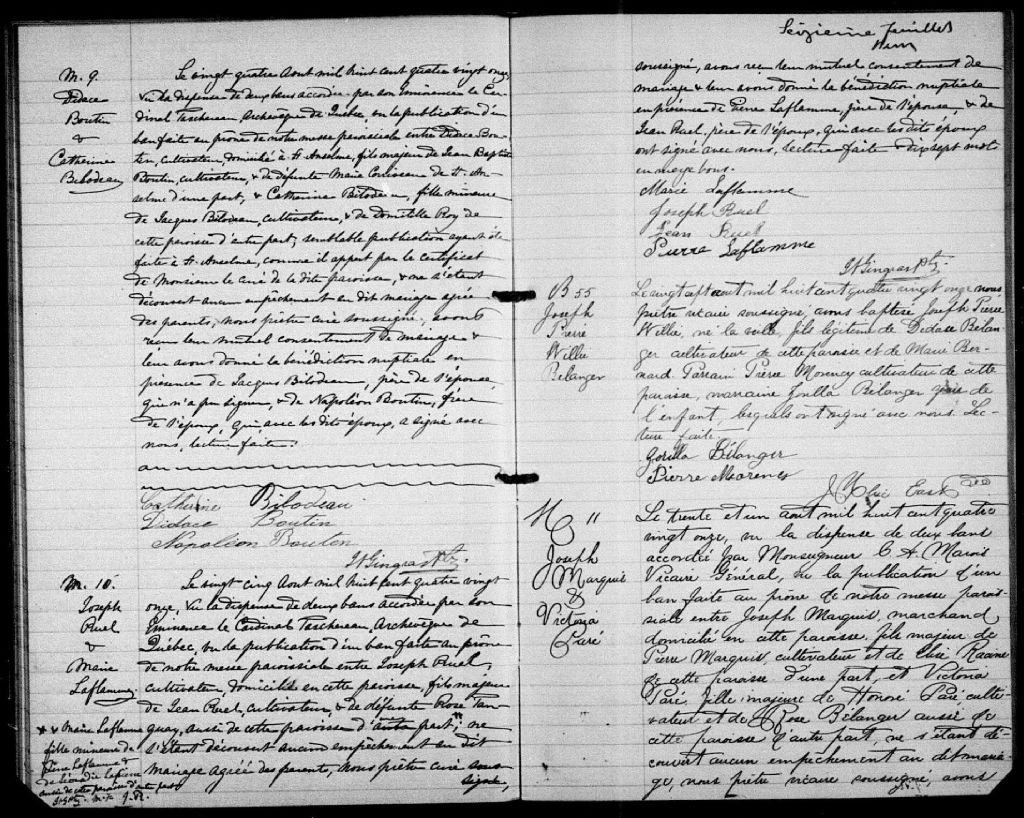 M. 9.
Didace
Boutin
&
Catherine
Bilodeau
Le vingt quatre Aout mil huit cent quatre vingt onze,
vu la dispense de deux bans accordée par son Eminence le Car-
dinal Taschereau Archevêque de Québec, vu la publication d'un
ban faite au prône de notre messe paroissiale entre Didace Bou-
tin, cultivateur, domicilié à St Anselme, fils majeur de Jean Baptiste
Boutin, cultivateur, & de défunte Marie Couisseau de St An-
selme d'une part, & Catherine Bilodeau, fille mineure
de Jacques Bilodeau, cultivateur, & de Domitille Roy de
cette paroisse d'autre part; semblable publication ayant été
faite à St Anselme, comme il appert par le certificat
de Monsieur le curé de la dite paroisse, & ne s'étant
découvert aucun empêchement au dit mariage agréé
des parents, nous prêtre curé soussigné, avons
reçu leur mutuel consentement de mariage &
leur avons donné la bénédiction nuptiale en
présence de Jacques Bilodeau, père de l'épouse,
qui n'a pu signer, & de Napoléon Boutin, frère
de l'époux, qui, avec les dits époux, a signé avec
nous, lecture faite.
Catherine Bilodeau
Didace Boutin
Napoléon Boutin
Gingras Ptre
M. 10.
Joseph
Ruel
&
Marie
Laflamme
Le vingt cinq Aout mil huit cent quatre vingt
onze, vu la dispense de deux bans accordée par son
Eminence le Cardinal Taschereau Archevêque de
Québec, vu la publication d'un ban faite au prône
de notre messe paroissiale entre Joseph Ruel,
cultivateur, domicilié en cette paroisse, fils majeur
de Jean Ruel, cultivateur, & de défunte Rose Tan-
guay, aussi de cette paroisse d'une part, ne
s'étant découvert aucun empêchement au dit
mariage agréé des parents, nous prêtre curé sous-
signé,
& Marie Laflamme
fille mineure de
Pierre Laflamme &
de Léocadie
aussi de cette paroisse d'autre part
J. R.
Seizième feuillet
soussigné, avons reçu leur mutuel consentement de
mariage & leur avons donné la bénédiction nuptiale
en présence de Pierre Laflamme, père de l'épouse, & de
Jean Ruel, père de l'époux, qui avec les dits époux
ont signé avec nous, lecture faite. Dix sept mots
en marge bons.
Marie Laflamme
Joseph Ruel
Jean Ruel
Pierre Laflamme
Gingras Ptre
B 55
Joseph
Pierre
Willie
Belanger
Le vingt sept aout mil huit cent quatre vingt onze nous
prêtre vicaire soussigné, avons baptisé Joseph Pierre
Willie, né la veille, fils légitime de Didace Belan-
ger cultivateur de cette paroisse et de Marie Ber-
nard Parrain Pierre Morency cultivateur de cette
paroisse, marraine Belanger de
l'enfant, lesquels ont signé avec nous. Lec-
ture faite.
Bélanger
Pierre Morency
M 11
Joseph
Marquis
&
Victoria
Paré
Le trente et un aout mil huit cent quatre
vingt onze, vu la dispense de deux bans
accordée par Monseigneur C A Marois
Vicaire Général, vu la publication d'un
ban faite au prone de notre messe parois-
siale entre Joseph Marquis, marchand
domicilié en cette paroisse, fils majeur de
Pierre Marquis, cultivateur et de Elise Racine
de cette paroisse d'une part, et Victoria
Paré, fille majeure de Honoré Paré, culti-
vateur et de Rose Bélanger aussi de
cette paroisse d'autre part, ne s'étant dé-
couvert aucun empêchement au dit maria-
ge, nous prêtre vicaire soussigné, avons